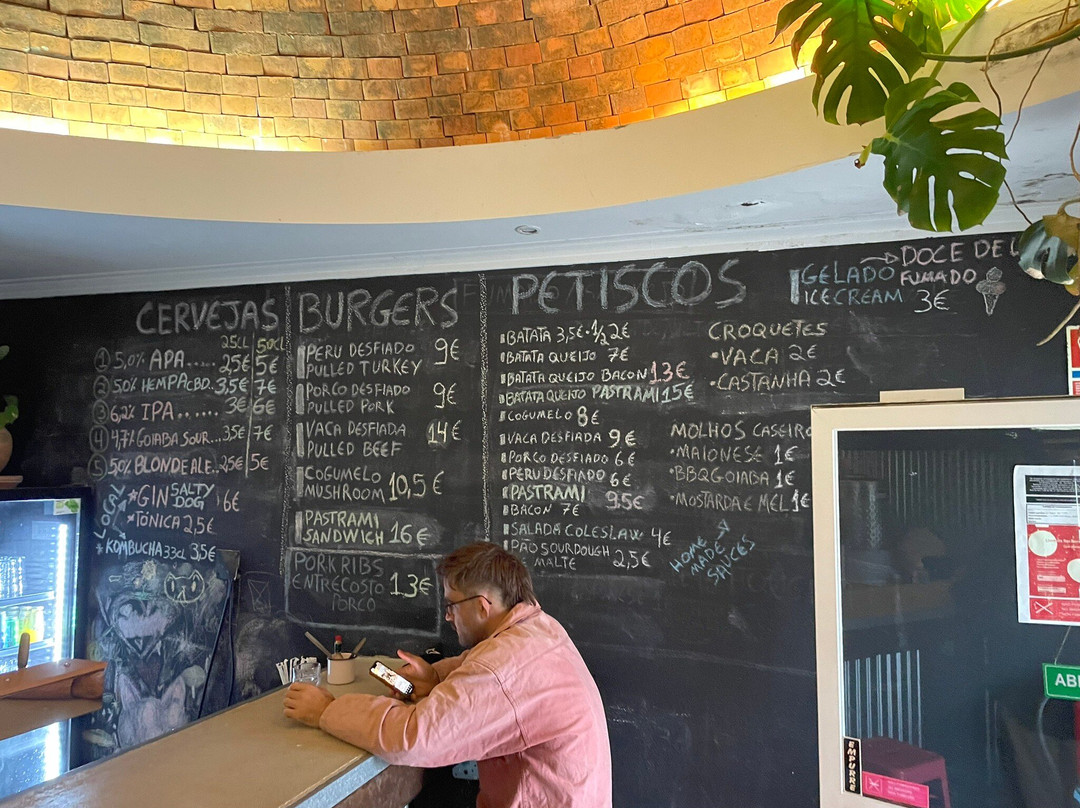 CERVEJAS
25CL 50CL
1 5,0% APA..... 2,5€ 5€
2 5,0% HEMP A CBD. 3,5€ 7€
3 6,2% IPA....... 3€ 6€
4 4,7% GOIABA SOUR... 3,5€ 7€
5 5,0% BLONDE ALE.. 2,5€ 5€
*GIN SALTY DOG 6€
*TÓNICA 2,5€
*KOMBUCHA 33CL 3,5€
BURGERS
PERU DESFIADO 9€
PULLED TURKEY
PORCO DESFIADO 9€
PULLED PORK
VACA DESFIADA 14€
PULLED BEEF
COGUMELO
MUSHROOM 10,5€
PASTRAMI
SANDWICH 16€
PORK RIBS
ENTRECOSTO 13€
PORCO
PETISCOS
BATATA 3,5€ · 1/2 2€
BATATA QUEIJO 7€
BATATA QUEIJO BACON 13€
BATATA QUEIJO PASTRAMI 15€
COGUMELO 8€
VACA DESFIADA 9€
PORCO DESFIADO 6€
PERU DESFIADO 6€
PASTRAMI 9.5€
BACON 7€
SALADA COLESLAW 4€
PÃO SOURDOUGH 2,5€
MALTE
CROQUETES
•VACA 2€
•CASTANHA 2€
MOLHOS CASEIRO
•MAIONESE 1€
•BBQ GOIABA 1€
•MOSTARDA E MEL 1€
HOME
MADE
SAUCES
GELADO
ICECREAM
DOCE DE
FUMADO
3€
EMPURRE